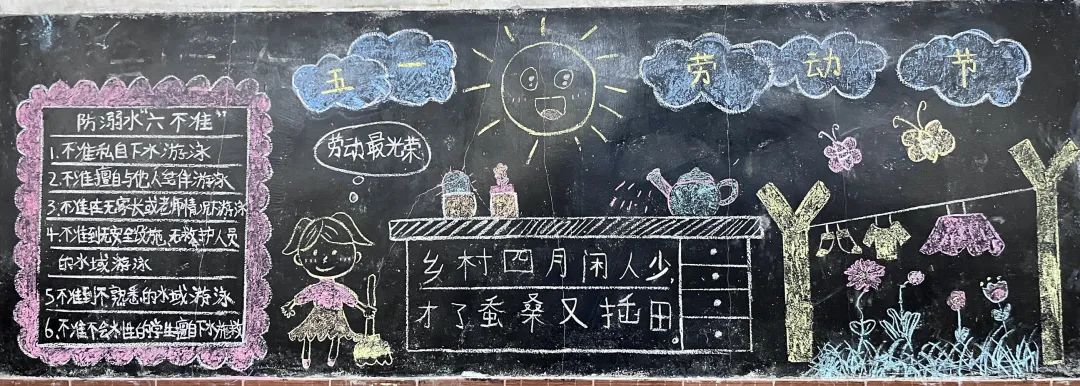 五一 劳动节
劳动最光荣
防溺水“六不准”
1.不准私自下水游泳
2.不准擅自与他人结伴游泳
3.不准在无家长或老师情况下游泳
4.不准到无安全设施,无救护人员
的水域游泳
5不准到不熟悉的水域游泳
6.不准不会水性的学生擅自下水施救
乡村四月闲人少
才了蚕桑又插田